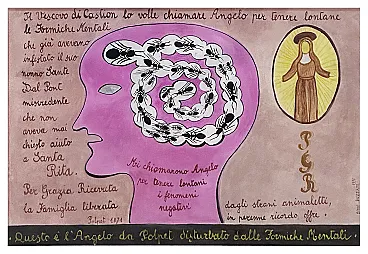 Il Vescovo di Castion lo volle chiamare Angelo per tenere lontane
le Formiche Mentali
che già avevano
infestato il suo
nonno Sante
Dal Pont
miscredente
che non
aveva mai
chiesto aiuto
a Santa
Rita.
Per Grazia Ricevuta
la Famiglia liberata
Polpet 1871
Mi chiamarono Angelo
per tenere lontani
i fenomeni
negativi
P
G
R
dagli strani animaletti,
in perenne ricordo offre.
Questo è l'Angelo da Polpet disturbato dalle Formiche Mentali.